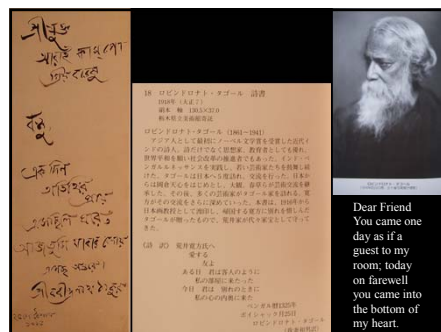 শ্রীযুক্ত
আরাই কাম্পো
প্রিয়বরেষু
বন্ধু,
একদিন
অতিথির
প্রায়
এসেছিলে ঘরে
আজি তুমি যাবার বেলায়
এসেছ অন্তরে।
শ্রীরবীন্দ্রনাথ ঠাকুর
18 ロビンドロナト・タゴール 詩書
1918年（大正7）
130.5×37.0
栃木県立美術館寄託
ロビンドロナト・タゴール（1861～1941）
アジア人として最初にノーベル文学賞を受賞した近代イ
ンドの詩人。詩だけでなく思想家、教育者としても優れ、
世界平和を願い社会改革の推進者でもあった。インド・ベ
ンガルルネッサンスを実践し、若い芸術家たちを指導し続
けた。タゴールは日本へも訪れ、交流を行った。日本か
らは岡倉天心をはじめとし、大観、春草らが芸術交流を継
承した。その後、多くの芸術家がタゴール家を訪れ、寛
方がその交流をさらに深めていった。本書は、1918年から
日本画教授として渡印し、帰国する寛方に別れを惜しんだ
タゴールが贈ったもので、荒井家が代々家宝として守って
きた。
〈詩 訳〉 荒井寛方氏へ
愛する
友よ
ある日 君は客人のように
私の部屋に来たった
今日 君は 別れのときに
私の心の内奥に来た
ベンガル暦1325年
ボイシャック月25日
ロビンドロナト・タゴール
Dear Friend
You came one
day as if a
guest to my
room; today
on farewell
you came into
the bottom of
my heart.